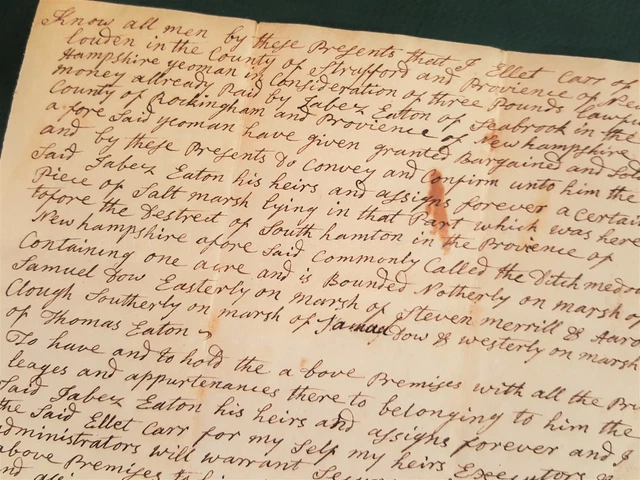 Know all men by these Presents that I Ellet Carr of
louden in the County of Strafford and Provience of
Hampshire yeoman in Consideration of three Pounds lawfu
money allready Paid by Jabez Eaton of Seabrook in the
County of Rockingham and Provience of New hampshire
a fore Said yeoman have given granted Bargained and Sol
and by these Presents do Convey and Confirm unto him the
Said Jabez Eaton his heirs and assigns forever a certain
Piece of Salt marsh lying in that Part which was here
tofore the Destrect of South hamton in the Provience of
New hampshire afore Said Commonly Called the Ditch medow
Containing one acre and is Bounded Notherly on marsh of
Samuel Dow Easterly on marsh of Steven merrill & Aaro
Clough Southerly on marsh of Samuel Dow & westerly on marsh
of Thomas Eaton
To have and to hold the a bove Premises with all the Pri
leages and appurtenances there to belonging to him the
Said Jabez Eaton his heirs and assigns forever and I
the Said Ellet Carr for my Self my heirs Executors &
dministrators will warrant
above Premises to